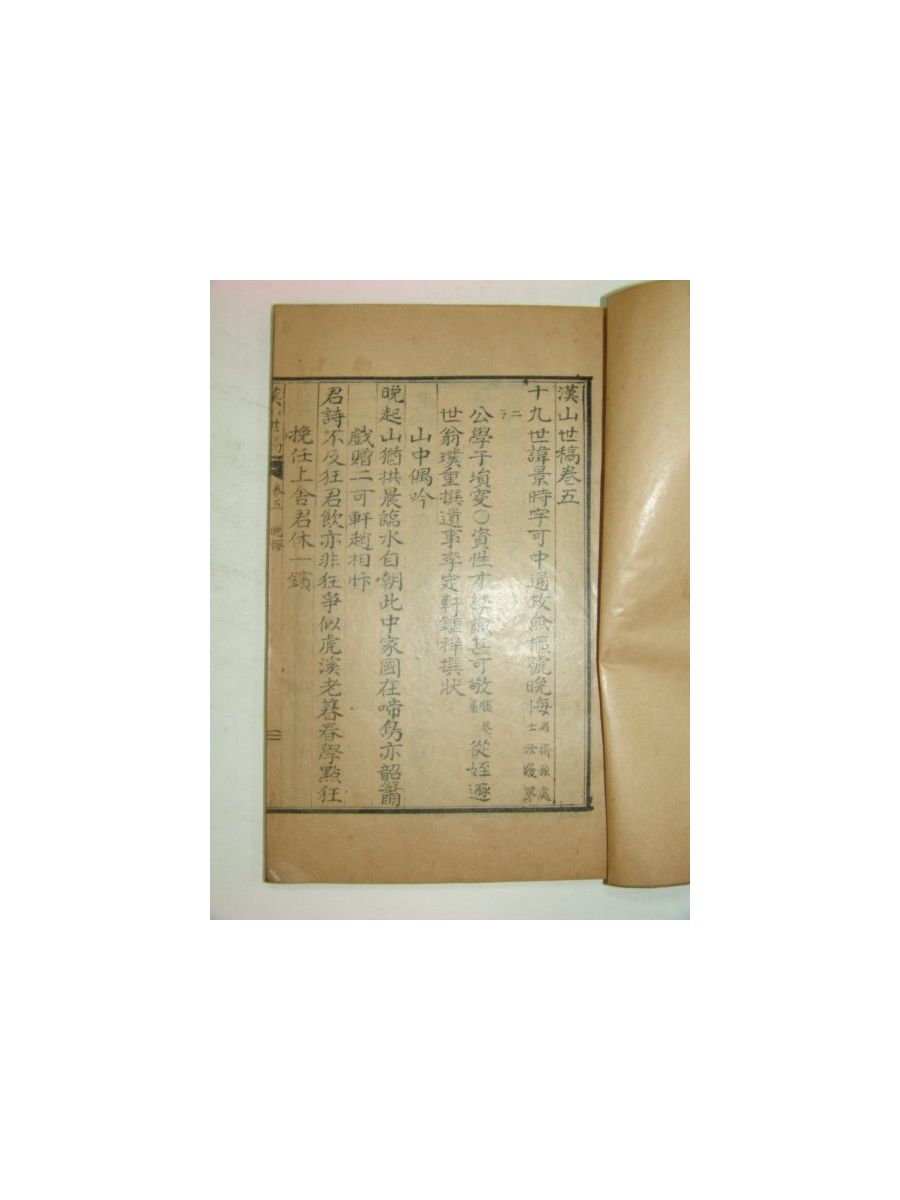 漢山世稿卷五
十九世諱景時字可中通政僉樞號晩悔 居齋孫處士汝䕫界二子
公學于塤叟〇資性才 甚可敬 從姪遜
世翁璞重撰遺事李定軒鍾祥撰狀
山中偶吟
晩起山猶拱晨臨水自朝此中家國在啼鳥亦韶簫
戱贈二可軒趙相忭
君詩不及狂君飮亦非狂爭似虎溪老暮春學點狂
挽任上舍君休一鑌
漢山世稿 卷五 晩悔